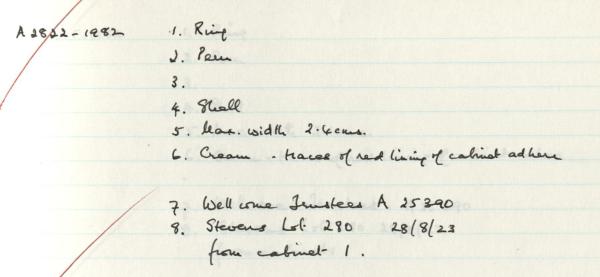 A 2822-1982 1. Ring
2. Peru
3.
4. Shell
5. Max. width 2.4cms.
6. Cream - traces of red lining of cabinet adhere
7. Wellcome Trustees A 25390
8. Stevens Lot 280 28/8/23
from cabinet 1.